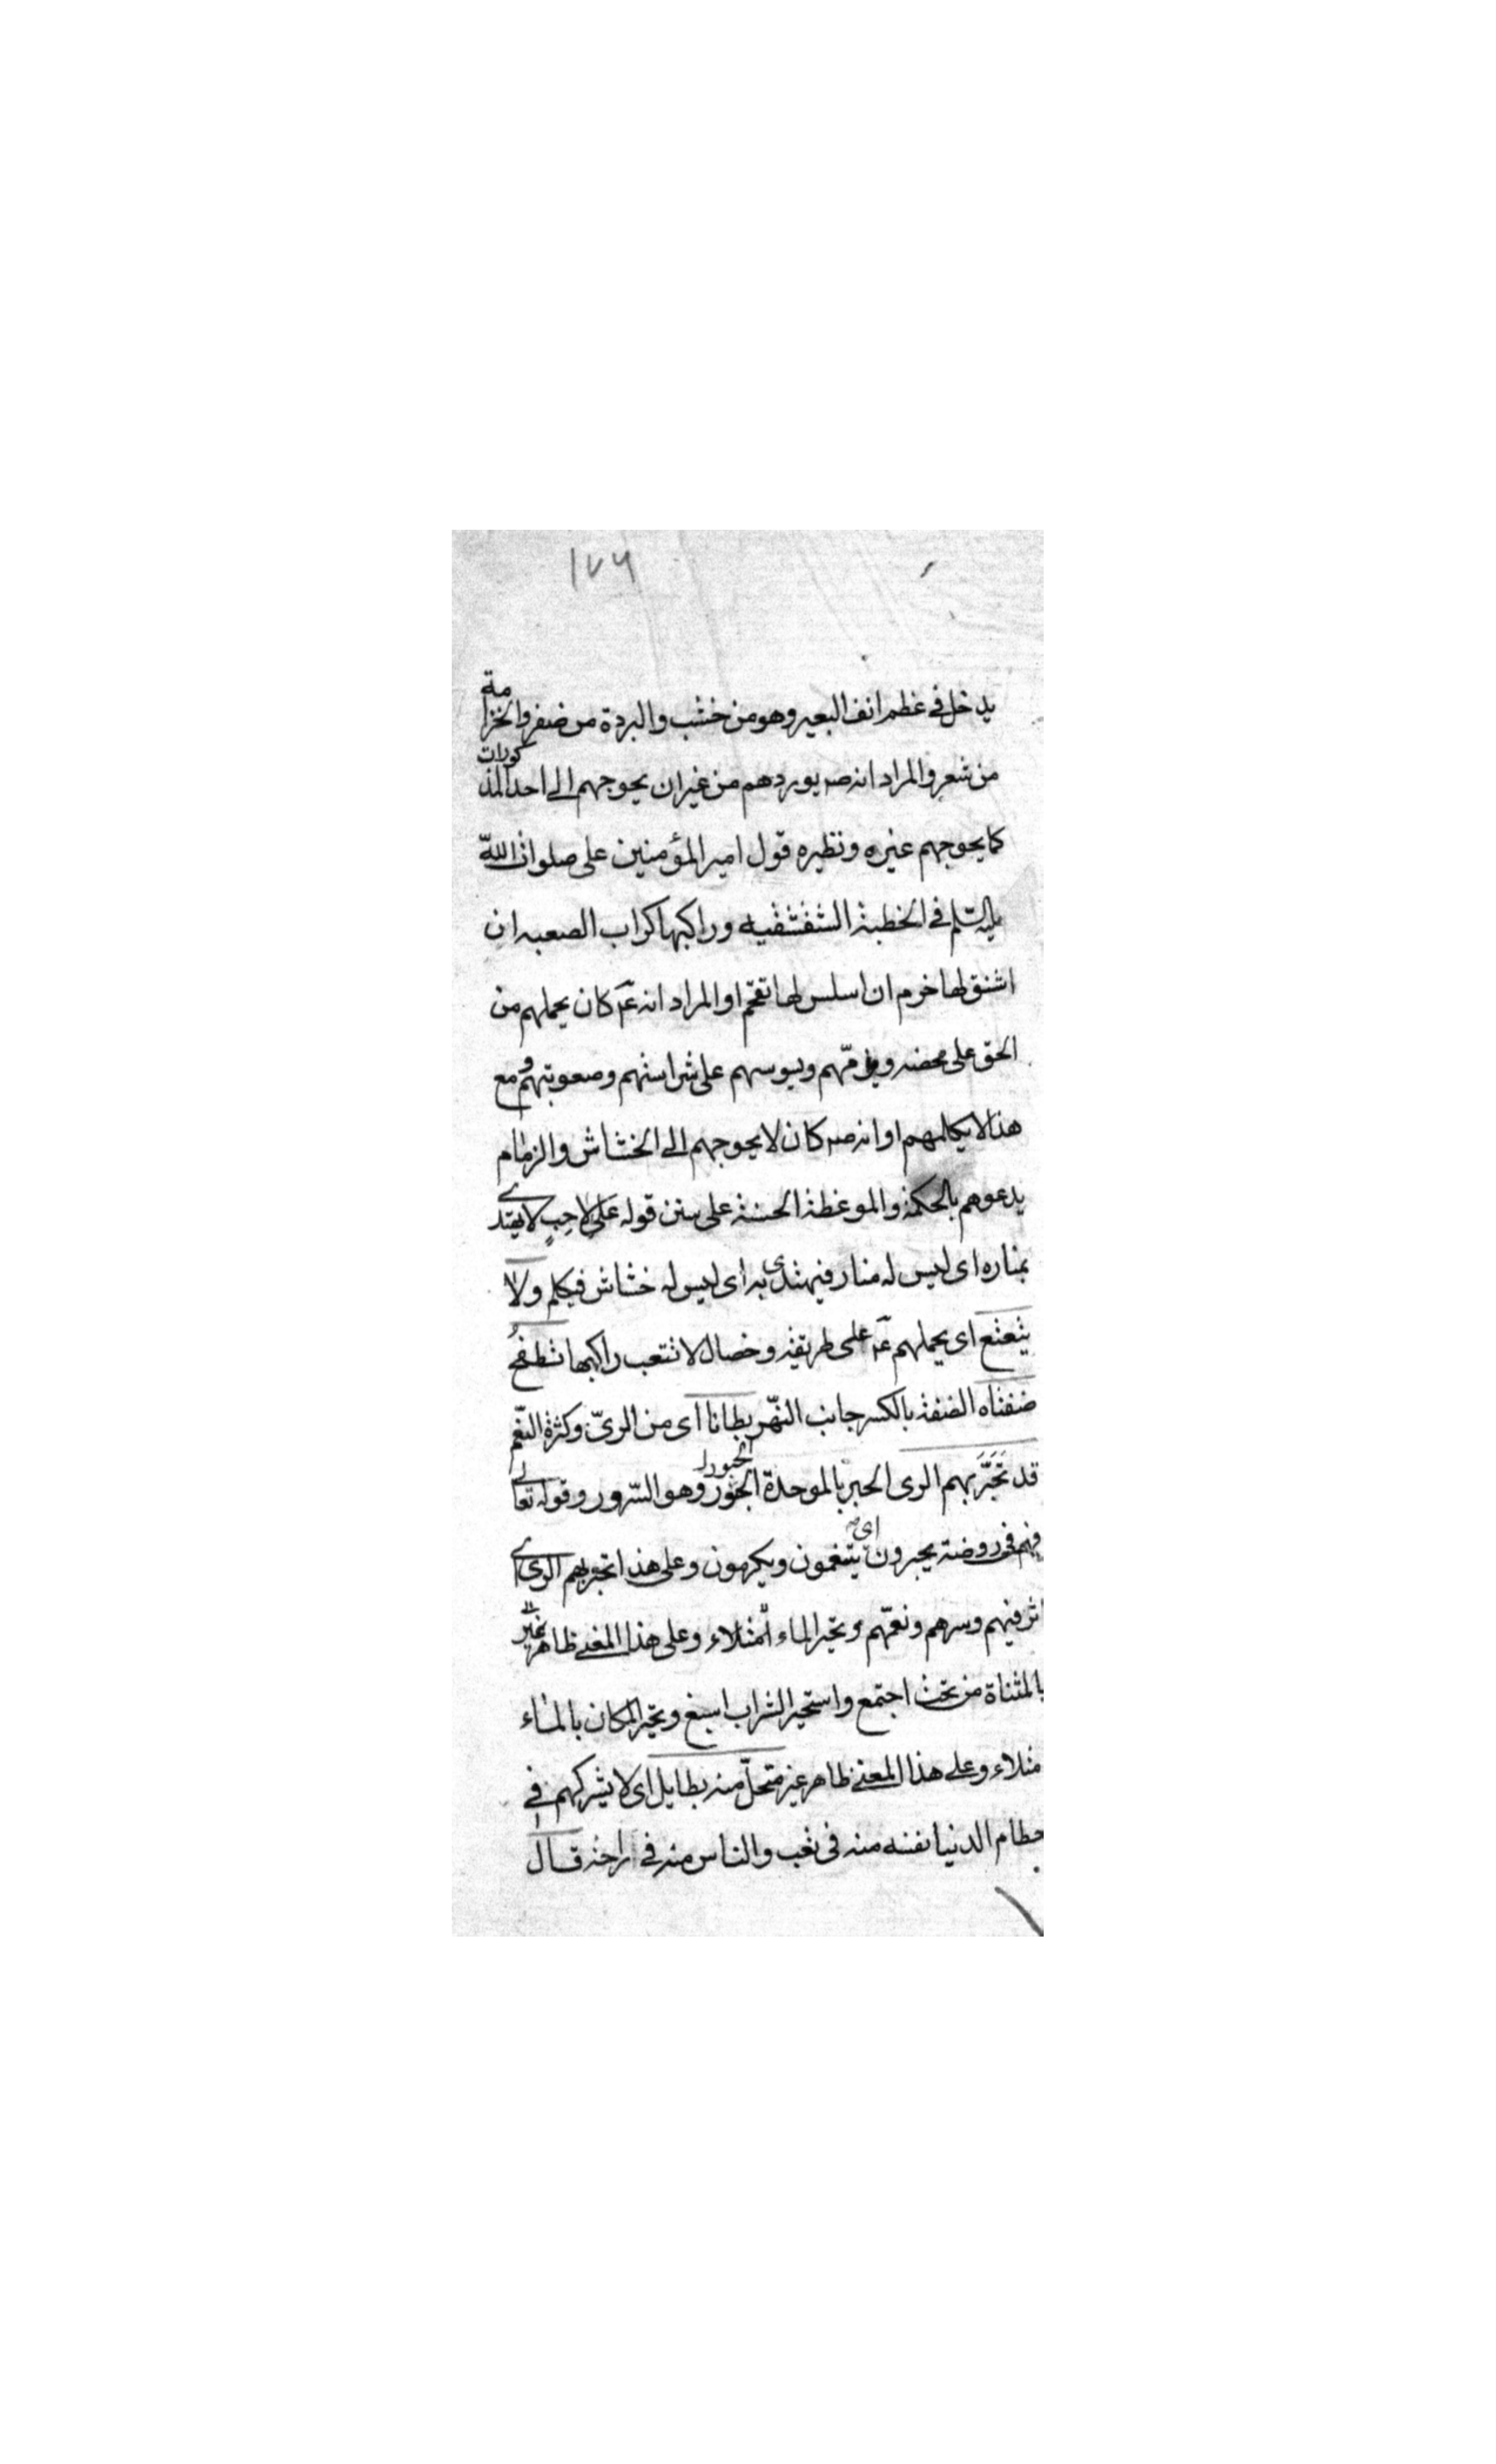 ١٧٦
يدخل في عظم انف البعير وهو من خشب والبردة من ضفر والخزامة
من شعر والمراد انه صہ يوردهم من غير ان يحوجهم الى احد المذكورات
كما يحوجهم غيره ونظيره قول امير المؤمنين على صلوات اللّه
عليه السّلم في الخطبة الشقشقيه وراكبها كراب الصعبه ان
اشنق لها خرم ان اسلس لها تقحّم او المراد انه عٓ كان يحملهم من
الحق على محضه و مّهم ويسوسهم على شراستهم وصعوبتهم و مع
هذا لا يكالمهم او انه صہ كان لا يحوجهم الى الخشاش والزمام
يدعوهم بالحكمة والموعظة الحسنة على سنن قوله عَلى لاحِبٍ لا يهتدى
بمناره اى ليس له منار فيهتدى به اى ليس له خشاش فيكلم ولا
يتعتع اى يحملهم عٓ على طريقة وخصال لا تتعب راكبها تطفحُ
ضفتاه الضفة بالكسر جانب النّهر بطانا اى من الرىّ وكثرة النّعم
قد تَحَبَّرَ بهم الرى الحبر بالموحدة الحبور الحبور وهو السّرور وقوله تعالى
فهم فى روضة يحبرون اى يتنعمون ويكرمون وعلى هذا تحبر بهم الرى اى
اثر فيهم وسرهم ونعّمهم وتحير الماء امتلاء وعلى هذا المعنى ظاهر تحيّر
بالمثناة من تحت اجتمع واستحير الشراب اسيغ وتحيّر المكان بالماء
متلاء وعلى هذا المعنى ظاهر غير متحلّ منه بطايل اى لا يشركهم في
حطام الدنيا نفسه منه فى تعب والناس منه في راحة قال